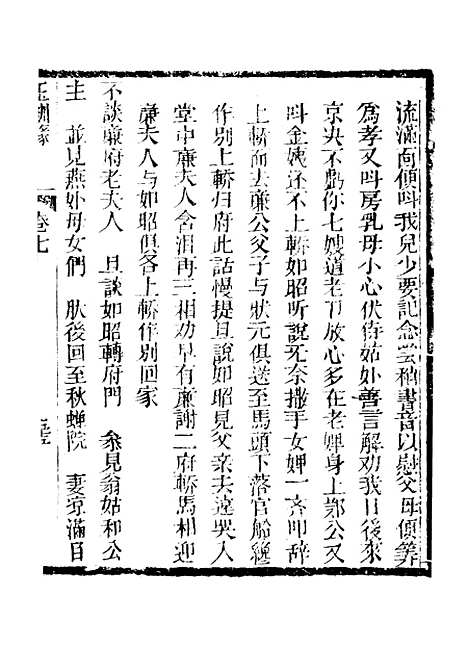 流滿面便呌我兒少要記念芸稍書音以慰父母便筭
爲孝又呌房乳母小心伏侍姑妙善言解劝我日後來
京决不虧你七嫂道老刀放心多在老婢身上鄧公又
呌金姨还不上轎如昭听說无奈撒手女婢一斉叩辞
上轎而去亷公父子与狀元俱送至馬頭下落官船緃
作別上轎归府此話慢提且說如昭見父亲夫遠哭入
堂中亷夫人含泪再三相劝早有亷謝二府轎馬相迎
亷夫人与如昭俱各上轎作別回家
不談亷府老夫人　且談如昭轉府門　叅見翁姑和公
主　並見燕妙母女們　肰後回至秋蟬院　妻凉滿目
玉釧緣　卷七